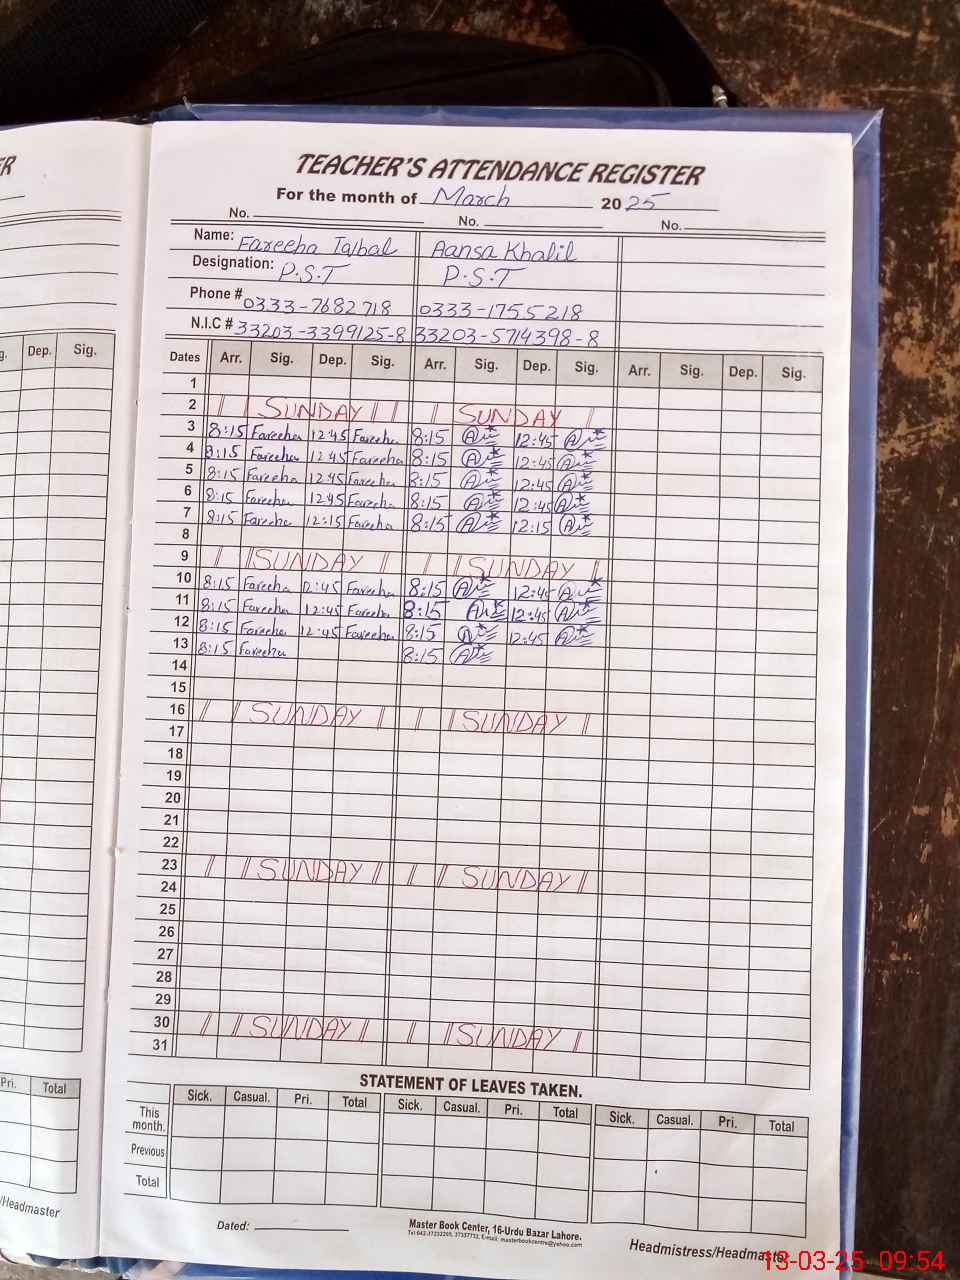 TEACHER'S ATTENDANCE REGISTER
For the month of March 2025
No. No. No.
Name: Fareeha Iqbal Aansa Khalil
Designation: P.S.T P.S.T
Phone # 0333-7682718 0333-1755218
N.I.C # 33203-3399125-8 33203-5714398-8
Dates Arr. Sig. Dep. Sig. Arr. Sig. Dep. Sig. Arr. Sig. Dep. Sig.
1
2 SUNDAY SUNDAY
3 8:15 Fareeha 12:45 Fareeha 8:15 12:45
4 8:15 Fareeha 12:45 Fareeha 8:15 12:45
5 8:15 Fareeha 12:45 Fareeha 8:15 12:45
6 8:15 Fareeha 12:45 Fareeha 8:15 12:45
7 8:15 Fareeha 12:15 Fareeha 8:15 12:15
8
9 SUNDAY SUNDAY
10 8:15 Fareeha 12:45 Fareeha 8:15 12:45
11 8:15 Fareeha 12:45 Fareeha 8:15 12:45
12 8:15 Fareeha 12:45 Fareeha 8:15 12:45
13 8:15 Fareeha 8:15
14
15
16 SUNDAY SUNDAY
17
18
19
20
21
22
23 SUNDAY SUNDAY
24
25
26
27
28
29
30 SUNDAY SUNDAY
31
STATEMENT OF LEAVES TAKEN.
Sick. Casual. Pri. Total Sick. Casual. Pri. Total Sick. Casual. Pri. Total
This month.
Previous
Total
Dated:
Master Book Center, 16-Urdu Bazar Lahore.
Headmistress/Headmaster
Dep. Sig.
Pri. Total
/Headmaster
13-03-25 09:54